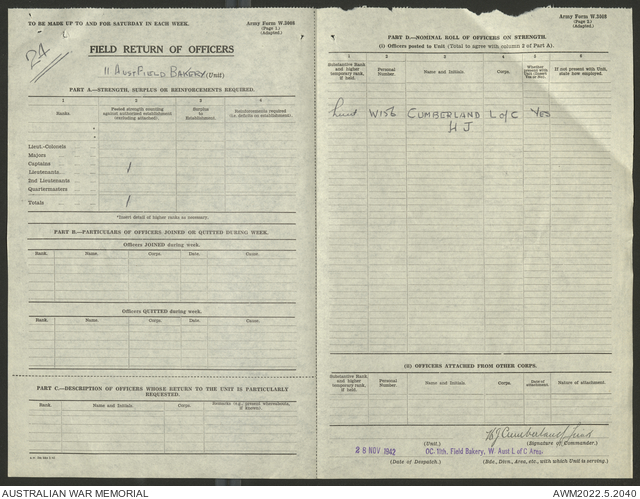 TO BE MADE UP TO AND FOR SATURDAY IN EACH WEEK.
Army Form W.3008
(Page 1.)
(Adapted.)
24
FIELD RETURN OF OFFICERS
11 AUST FIELD BAKERY (Unit)
PART A.—STRENGTH, SURPLUS OR REINFORCEMENTS REQUIRED.
1 2 3 4
Ranks. Posted strength counting against authorised establishment (excluding attached). Surplus to Establishment. Reinforcements required (i.e. deficits on establishment).
Lieut-Colonels
Majors
Captains 1
Lieutenants
2nd Lieutenants
Quartermasters
Totals 1
*Insert detail of higher ranks as necessary.
PART B.—PARTICULARS OF OFFICERS JOINED OR QUITTED DURING WEEK.
Officers JOINED during week.
Rank. Name. Corps. Date. Cause.
Officers QUITTED during week.
Rank. Name. Corps. Date. Cause.
PART C.—DESCRIPTION OF OFFICERS WHOSE RETURN TO THE UNIT IS PARTICULARLY
REQUESTED.
Rank. Name and Initials. Corps. Remarks (e.g., present whereabouts, if known).
Army Form W.3008
(Page 2.)
(Adapted.)
PART D.—NOMINAL ROLL OF OFFICERS ON STRENGTH.
(i) Officers posted to Unit (Total to agree with column 2 of Part A).
1 2 3 4 5 6
Substantive Rank and higher temporary rank, if held. Personal Number. Name and Initials. Corps. Whether present with Unit. (Insert Yes or No). If not present with Unit, state how employed.
Lieut W156 CUMBERLAND L of C YES
H J
(ii) OFFICERS ATTACHED FROM OTHER CORPS.
Substantive Rank and higher temporary rank, if held. Personal Number. Name and Initials. Corps. Date of attachment. Nature of attachment.
HJ Cumberland Lieut
(Unit.) (Signature of Commander.)
28 NOV 1942 OC 11th. Field Bakery, W Aust L of C Area
(Date of Despatch.) (Bde., Divn., Area, etc., with which Unit is serving.)
AUSTRALIAN WAR MEMORIAL
AWM2022.5.2040